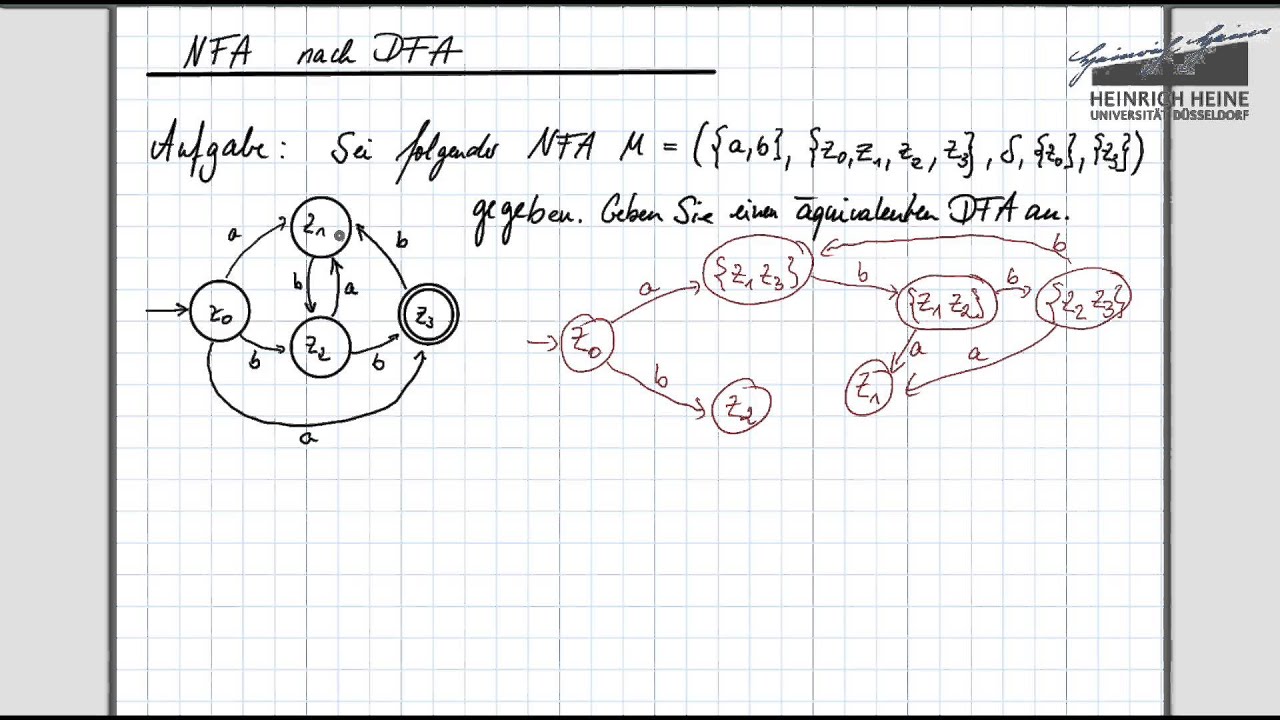 NFA nach DFA
HEINRICH HEINE
UNIVERSITÄT DÜSSELDORF
Aufgabe: Sei folgender NFA M = ({a,b}, {z0,z1,z2,z3}, δ, {z0}, {z3})
gegeben. Geben Sie einen äquivalenten DFA an.
z1
a
b
b
a
z0
z2
z3
b
b
a
{z1 z3}
b
a
b
{z1 z2}
b
{z2 z3}
z0
a
a
b
z1
z2